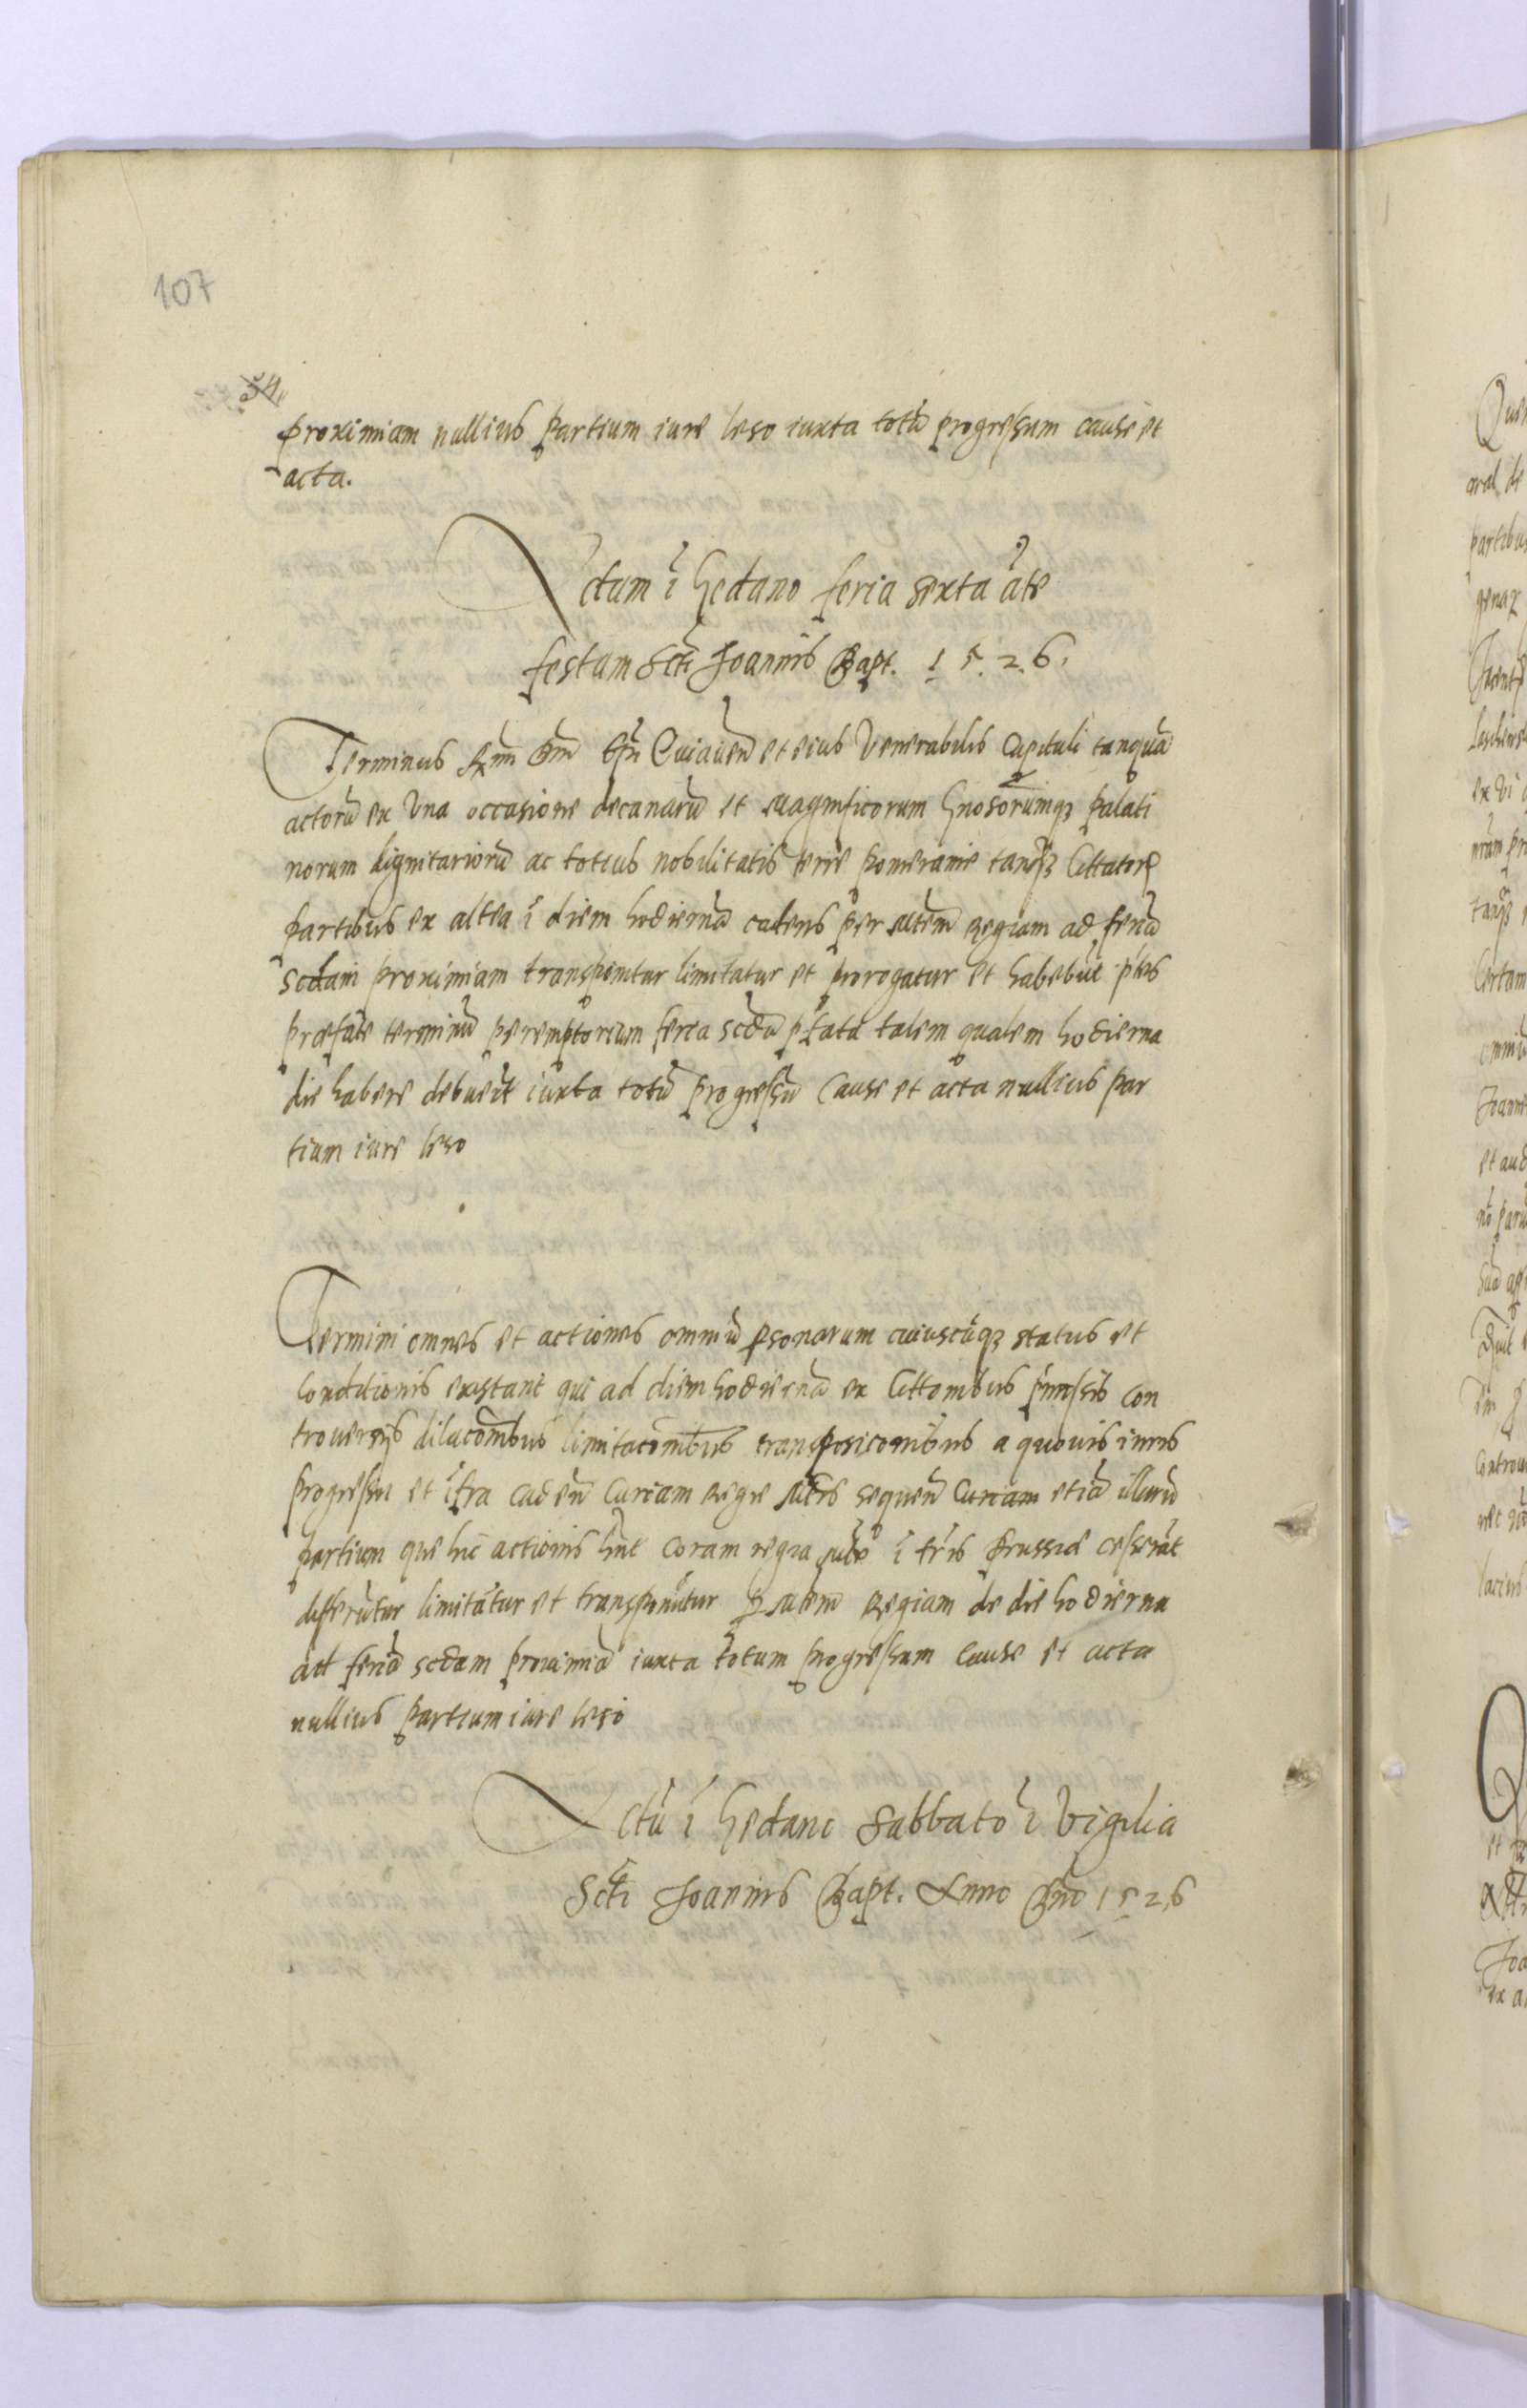 107
34
proximiam nullius partium iure leso iuxta totū progressum cause et
acta.
Actum ī Gedano feria sexta āte
festum Scti Joannis Bapt. 1526.
Terminus Rmi Dni Epi Cuiavien̄ et eius Venerabilis Capituli tanquā
actorū ex Una occasione decanarū et magnificorum Gnosorumqz palati
norum dignitariorū ac totius nobilitatis terre pomeranie tanqz Cittator
partibus ex altea ī diem hodiernā cadens per Mtem Regiam ad feriā
scdam proximiam transponitur limitatur et prorogatur et habebūt ptes
præfate terminū peremptorium feria scda pfata talem qualem hodierna
die habere debuerūt iuxta totū progressū Cause et acta nullius par
tium iure leso
Termini omnes et actiones omniū psonarum cuiuscūqz status et
conditionis existant qui ad diem hodiernā ex Cittonibus Con
trouersijs dilacōnibus limitacōnibus transposiconibus a quouis iuris
progressu et īfra caden̄ Curiam Regie Mtis sequen̄ Curiam etiā illarū
partium que huc actionis hnt Coram regia Mte ī tris Prussie cesserāt
differūtur limitātur et transponūtur p Mtem Regiam de die hodierna
ad feriā scdam proximiā iuxta totum progressum Cause et acta
nullius partium iure leso
Actū ī Gedano Sabbato ī Vigilia
Scti Joannis Bapt. Anno Dno 1526